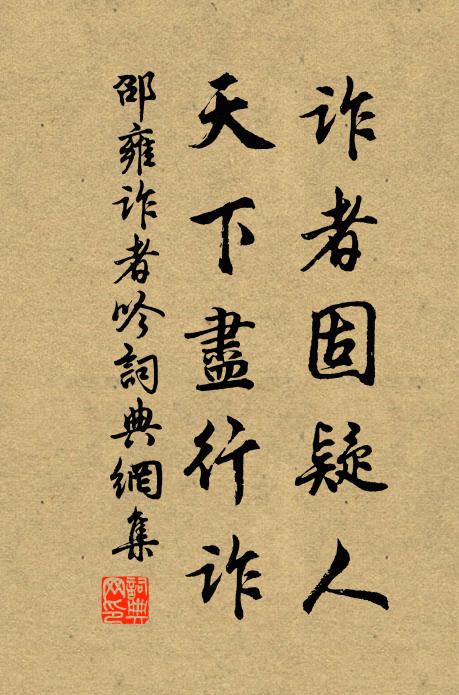 詐者固疑人
天下盡行詐
邵雍詐者吟詞典網集
詞典網印